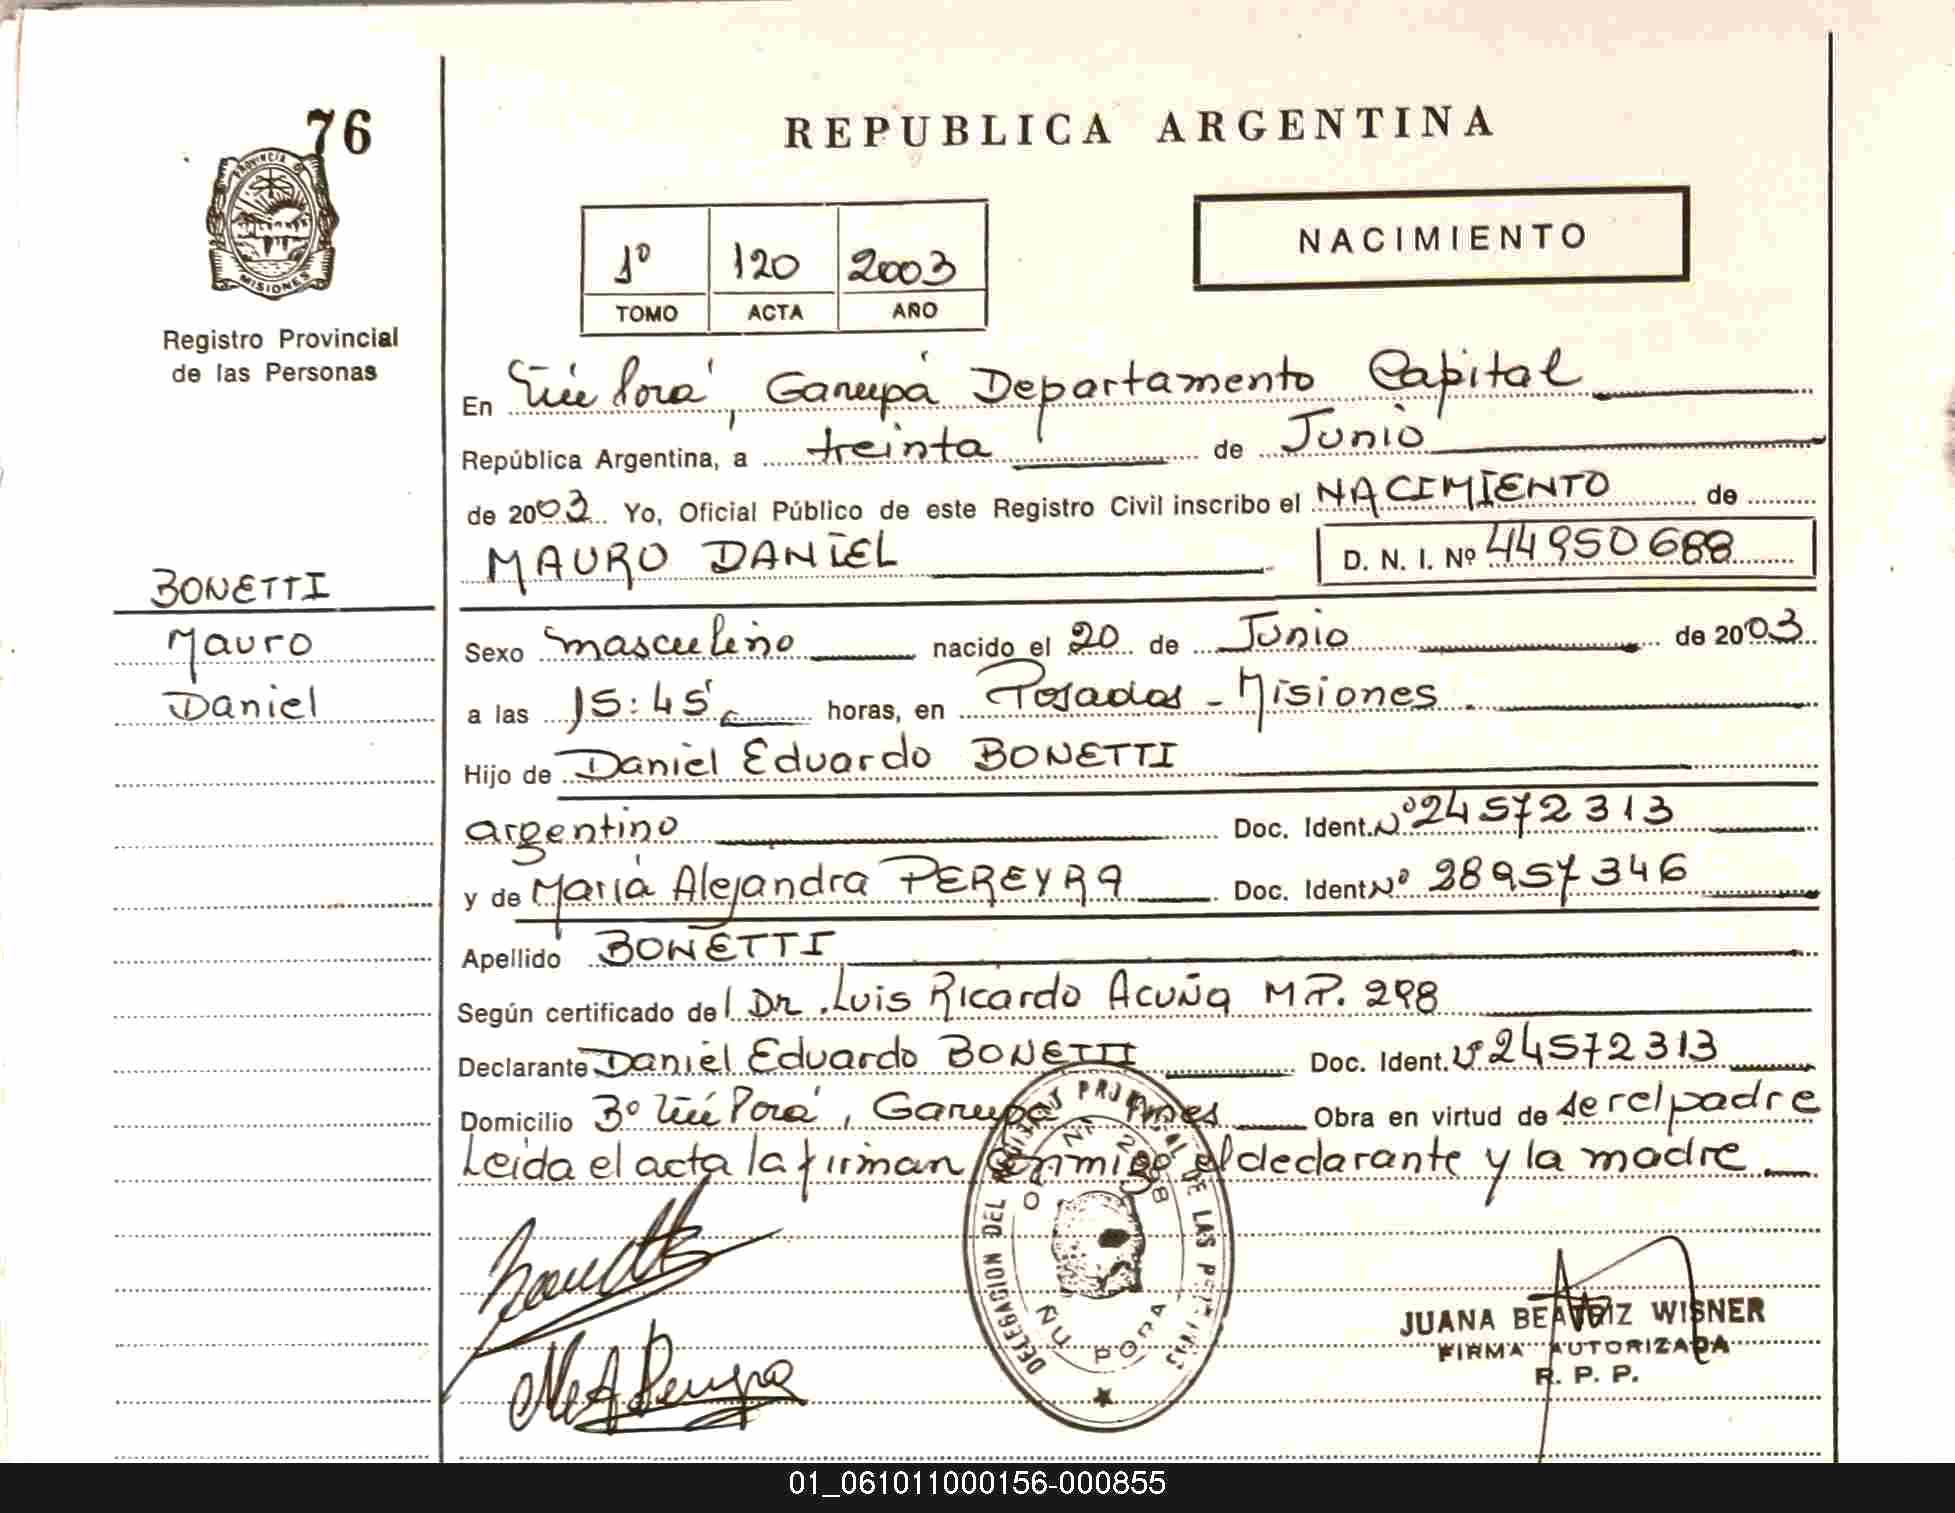 76
PROVINCIA DE
MISIONES
Registro Provincial
de las Personas
REPUBLICA ARGENTINA
1º 120 2003
TOMO ACTA AÑO
NACIMIENTO
En Ñu Porá, Garupá Departamento Capital
República Argentina, a treinta de Junio
de 2003 Yo, Oficial Público de este Registro Civil inscribo el NACIMIENTO de
MAURO DANIEL D. N. I. Nº 44950688
BONETTI
Mauro
Daniel
Sexo masculino nacido el 20 de Junio de 2003
a las 15:45 horas, en Posadas - Misiones.
Hijo de Daniel Eduardo BONETTI
argentino Doc. Ident. Nº 24572313
y de María Alejandra PEREYRA Doc. Ident Nº 28957346
Apellido BONETTI
Según certificado del Dr. Luis Ricardo Acuña M.P. 298
Declarante Daniel Eduardo BONETTI Doc. Ident. Nº 24572313
Domicilio Bº Ñu Porá, Garupá Mnes Obra en virtud de ser el padre
Leída el acta la firman conmigo el declarante y la madre
DELEGACION DEL REGISTRO PROVINCIAL DE LAS PERSONAS
OF. Nº 298
ÑU PORA
JUANA BEATRIZ WISNER
FIRMA AUTORIZADA
R. P. P.
01_061011000156-000855